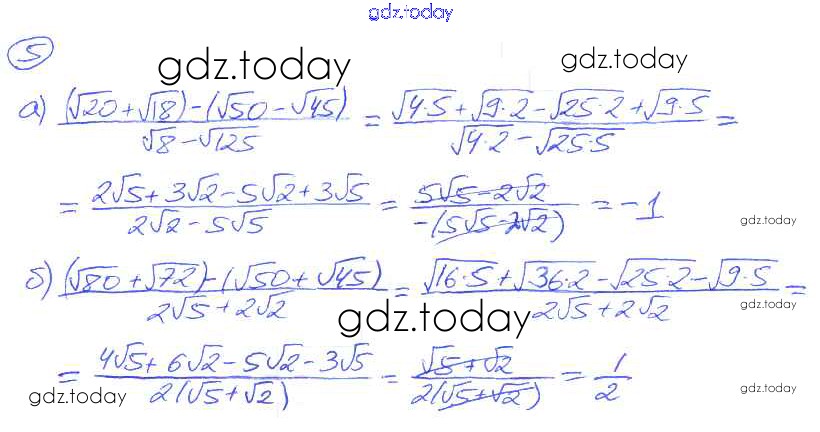 gdz.today
5
gdz.today gdz.today
а) ((√20 + √18) - (√50 - √45)) / (√8 - √125) = (√4·5 + √9·2 - √25·2 + √9·5) / (√4·2 - √25·5) =
= (2√5 + 3√2 - 5√2 + 3√5) / (2√2 - 5√5) = (5√5 - 2√2) / (-(5√5 - 2√2)) = -1
gdz.today
б) ((√80 + √72) - (√50 + √45)) / (2√5 + 2√2) = (√16·5 + √36·2 - √25·2 - √9·5) / (2√5 + 2√2) =
gdz.today gdz.today
= (4√5 + 6√2 - 5√2 - 3√5) / (2(√5 + √2)) = (√5 + √2) / (2(√5 + √2)) = 1/2
gdz.today gdz.today